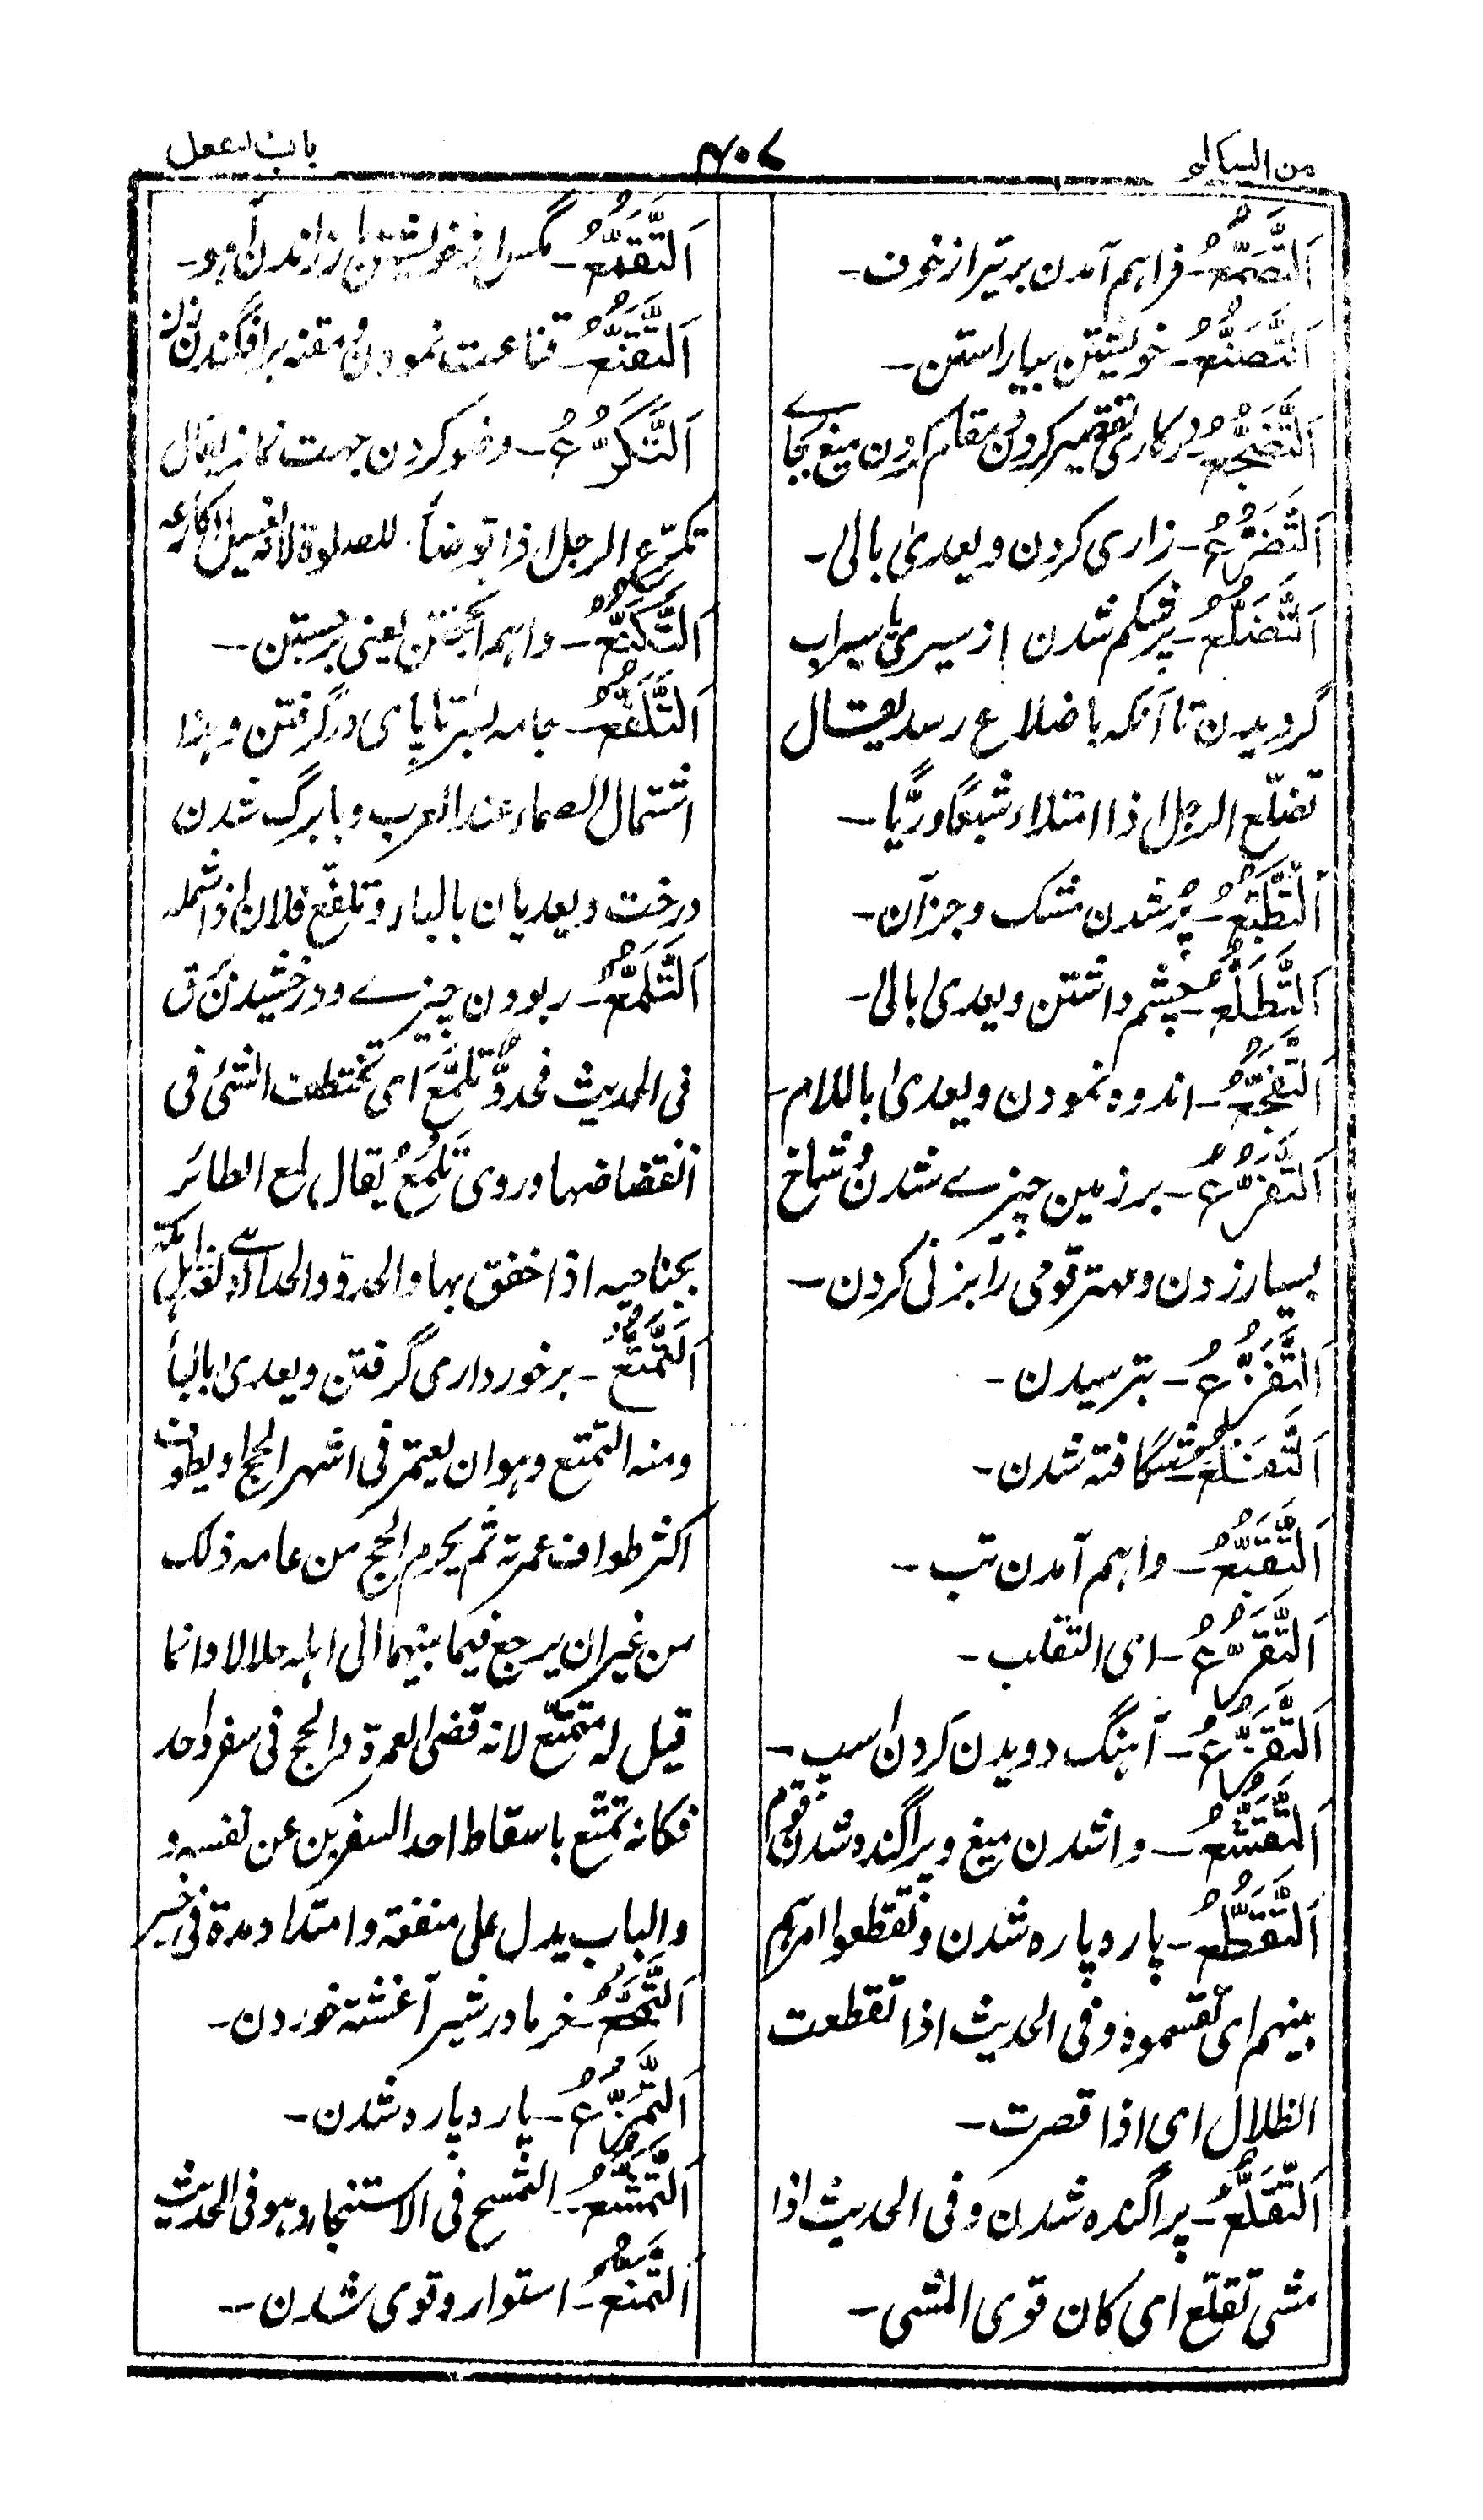 من السالم
۴۰۷
باب التفعل
اَلتَّصَمُّعُ - فراهم آمدن پر تیر از خوف -
اَلتَّصَنُّعُ - خویشتن بیاراستن -
اَلتَّضَجُّعُ - در کاری تقصیر کردن و مقام کردن میغ بجاے
اَلتَّضَرُّعُ - زاری کردن ویعدیٰ بالیٰ -
اَلتَّضَلُّعُ - پرشکم شدن از سیری یا سیراب
گردیدن تا آنکه باضلاع رسد یقال
تضلّع الرجل اذا امتلاء شبعًا وریًّا -
اَلتَّطَبُّعُ - پُر شدن مشک وجزآن -
اَلتَّطَلُّعُ - چشم داشتن ویعدیٰ بالیٰ -
اَلتَّفَجُّعُ - اندوه نمودن ویعدیٰ باللام -
اَلتَّفَرُّعُ - برزمین چیزے شدن و شاخ
بسیار زدن ومهتر قومی را بزنی کردن -
اَلتَّفَزُّعُ - بترسیدن -
اَلتَّفَلُّعُ - شگافته شدن -
اَلتَّقَبُّعُ - واهم آمدن تب -
اَلتَّقَرُّعُ - ای التقلب -
اَلتَّقَزُّعُ - آهنگ دویدن کردن اسپ -
اَلتَّقَشُّعُ - واشدن میغ وپراگنده شدن قوم
اَلتَّقَطُّعُ - پاره پاره شدن وتقطعوا امرهم
بینهم ای تقسموه وفی الحدیث اذا تقطعت
الظلال ای اذا قصرت -
اَلتَّقَلُّعُ - پراگنده شدن وفی الحدیث اذا
مشی تقلّع ای کان قوی المشی -
اَلتَّقَمُّعُ - مگس از خویشتن باز راندن آهو -
اَلتَّقَنُّعُ - قناعت نمودن و مقنعه برافگندن زن
اَلتَّكَرُّعُ - وضو کردن جهت نماز یقال
تکرّع الرجل اذا توضأ للصلوة لانه یغسل اکارعه
اَلتَّكَنُّعُ - واهم انجفتن یعنی بربستن -
اَلتَّلَفُّعُ - جامه بسر تا پای درگرفتن وهذا
اشتمال الصماء عند العرب وبابرگ شدن
درخت ویعدیان بالباء وتلفّع فلان اذا شمله
اَلتَّلَمُّعُ - ربودن چیزے ودرخشیدن برق
فی الحدیث فحدوٌّ تلمَّع ای تختطف الشیٔ فی
انقضاضها وروی تَلمَعُ یقال لمع الطائر
بجناحیه اذا خفق بها والحدو والحدأة لغة اهل مکة
اَلتَّمَتُّعُ - برخورداری گرفتن ویعدیٰ بالباء
ومنه التمتع وهو ان یعتمر فی اشهر الحج او یطوف
اکثر طواف عمرته ثم یحرم الحج من عامه ذلک
من غیر ان یرجع فیما بینهما الی اهله حلالا وانما
قیل له متمتّع لانه قضی العمرة والحج فی سفر واحد
فکانه تمتّع باسقاط احد السفرین عن نفسه و
والباب یدل علی منفعة وامتداد مدة فی خیر
اَلتَّمَجُّعُ - خرما درشیر آغشته خوردن -
اَلتَّمَزُّعُ - پاره پاره شدن -
اَلتَّمَشُّعُ - التمسح فی الاستنجاء وهو فی الحدیث
اَلتَّمَنُّعُ - استوار وقوی شدن -